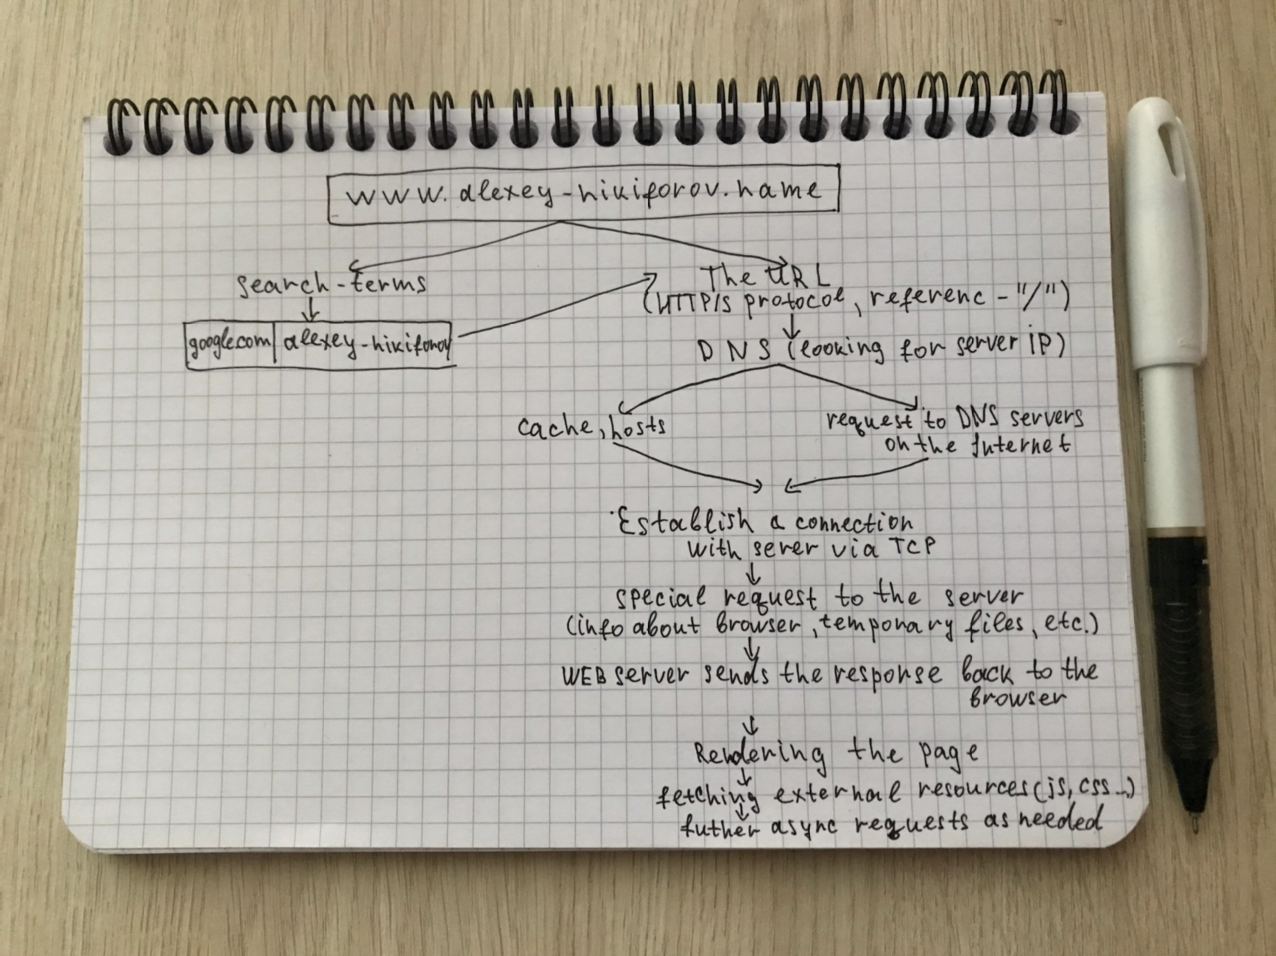 www.alexey-nikiforov.name
search-terms
google.com | alexey-nikiforov
The URL
(HTTP/S protocol, referenc - "/")
DNS (looking for server ip)
cache, hosts
request to DNS servers
on the Internet
Establish a connection
with serer via TCP
special request to the server
(info about browser, temporary files, etc.)
WEB server sends the response back to the
browser
Rendering the page
fetching external resources (js, css...)
futher async requests as needed